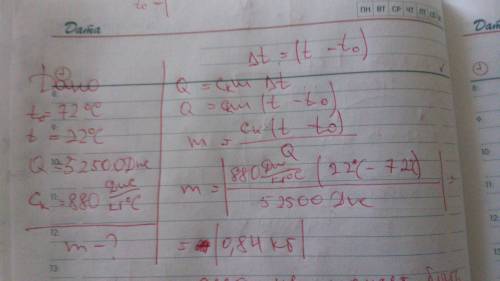 t₀ =
ПН ВТ СР ЧТ ПТ
Дата
Δt = (t - t₀)
Дано
t₀ = 72°C
t = 22°C
Q = 52500 Дж
Cк = 880 Дж/кг°C
m - ?
Q = Cкm Δt
Q = Cкm (t - t₀)
m = Cк (t - t₀) / Q
m = | 880 Дж/кг°C (22°C - 72) / 52500 Дж | =
= |0,84 кг|
10
11
12
13